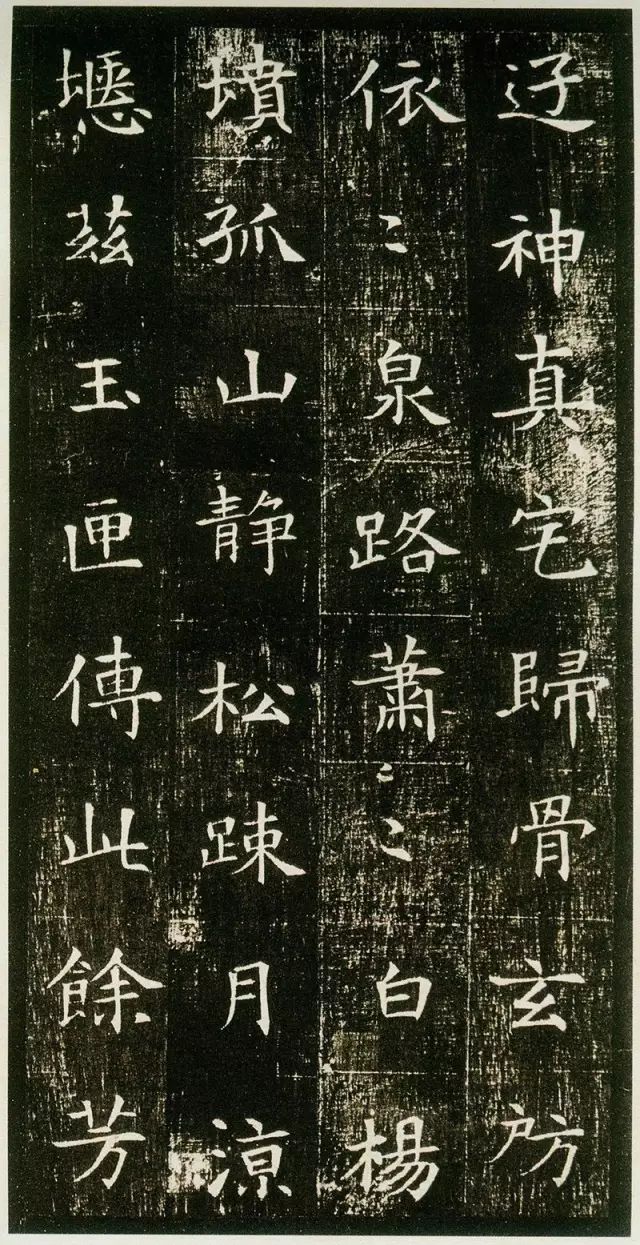 迁神真宅歸骨玄房
依〻泉路蕭〻白楊
墳孤山静松踈月涼
茲玉匣傳此餘芳